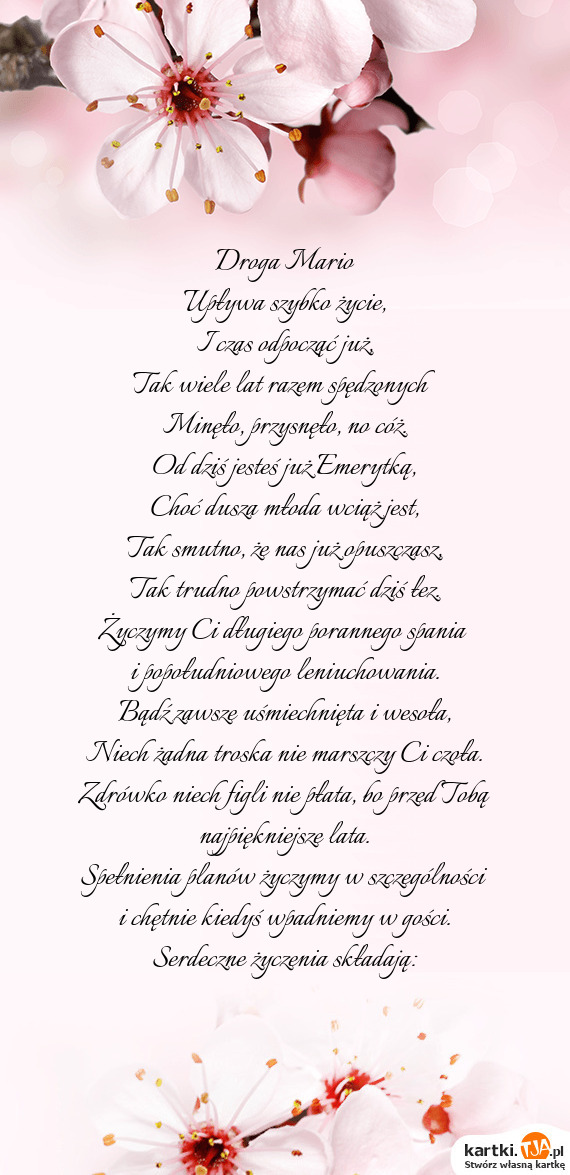 Droga Mario
Upływa szybko życie,
I czas odpocząć już,
Tak wiele lat razem spędzonych
Minęło, przysnęło, no cóż.
Od dziś jesteś już Emerytką,
Choć dusza młoda wciąż jest,
Tak smutno, że nas już opuszczasz,
Tak trudno powstrzymać dziś łez.
Życzymy Ci długiego porannego spania
i popołudniowego leniuchowania.
Bądź zawsze uśmiechnięta i wesoła,
Niech żadna troska nie marszczy Ci czoła.
Zdrówko niech figli nie płata, bo przed Tobą
najpiękniejsze lata.
Spełnienia planów życzymy w szczególności
i chętnie kiedyś wpadniemy w gości.
Serdeczne życzenia składają:
kartki.TJA.pl
Stwórz własną kartkę